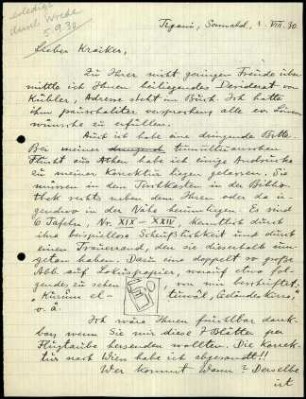 Erledigt
durch Wrede
5.9.30
Tigani, Sonnabd. 1. VIII. 30
Lieber Kraiker,
Zu Ihrer nicht geringen Freude über-
mittle ich Ihnen beiliegendes Desiderat von
Kübler, Adresse steht im Buch. Ich hatte
ihm versprochen alle
wünsche zu erfüllen.
Auch ich habe eine dringende Bitte.
Bei meiner tumultuarischen
Flucht aus Athen habe ich einige Andrucke
zu meiner Korrektur liegen gelassen. Sie
müssen in dem der Biblio-
thek rechts neben dem oder da
irgendwo in der Nähe herumliegen. Es sind
6 Tafeln, Nr. XIX – XXIV, kenntlich durch
ihre Scheußlichkeit und durch
einen Trauerrand, den sie dieserhalb um-
getan haben. Dazu eine doppelt so große
Abb. auf, worauf etwa fol-
gendes zu sehen
o. ä.
Ich wäre Ihnen furchtbar dank-
bar, wenn Sie mir diese 7 Blätter per
Flugtaube hersenden wollten. Die Korek-
tur nach Wien habe ich abgesandt!!
Wer kommt wann? Derselbe
ist